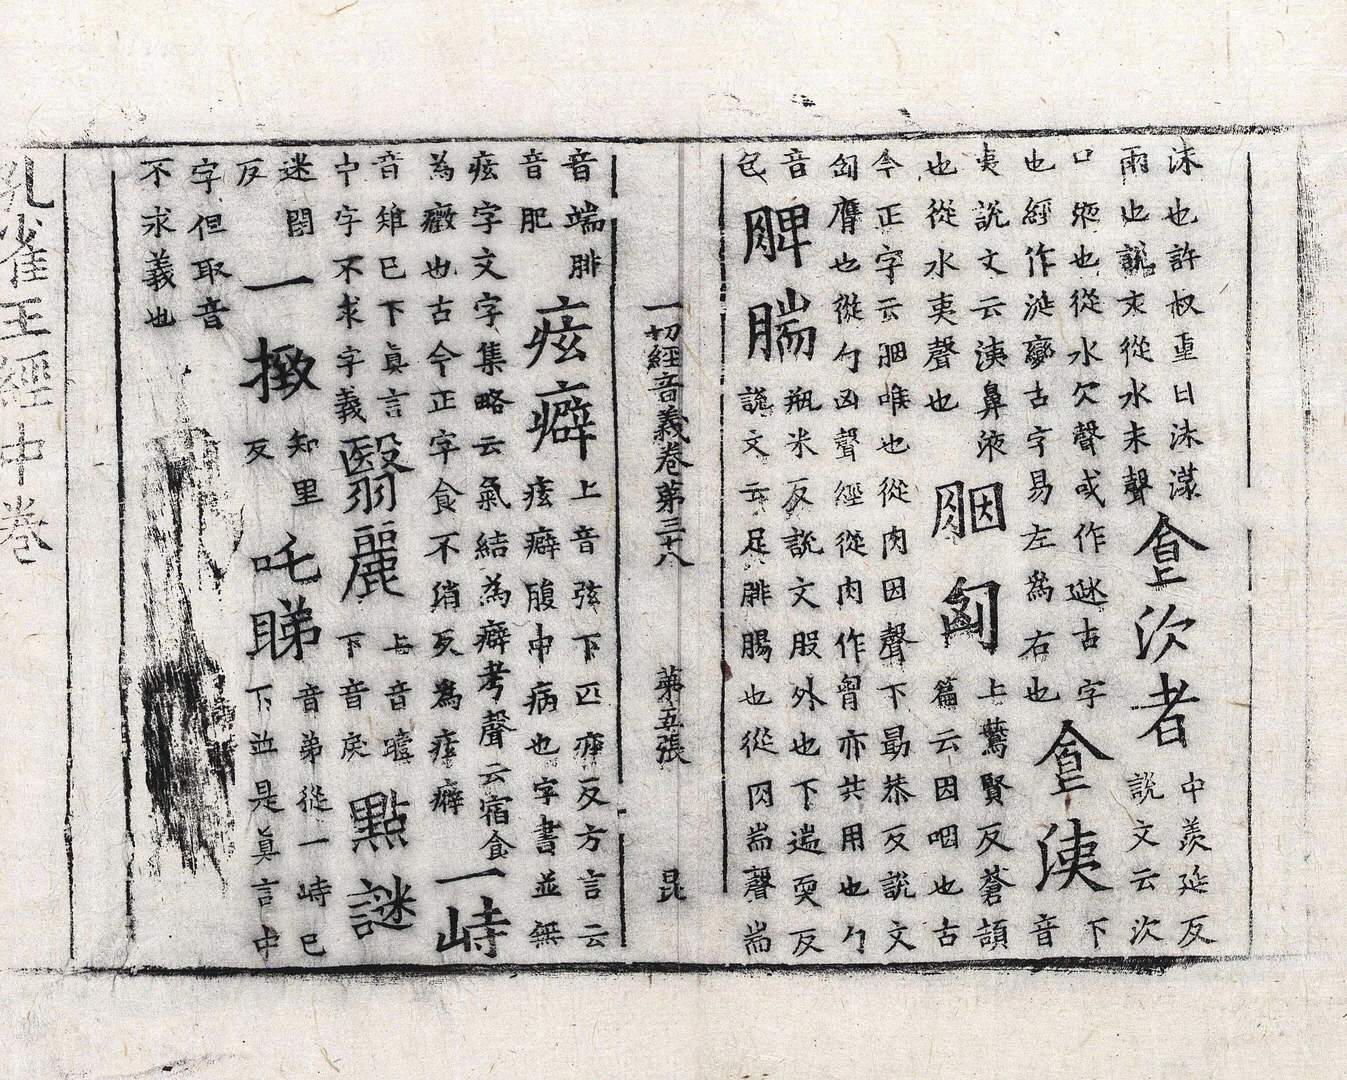 沫也許叔重曰沫潄
雨也說文從水未聲
食次者
中羨延反
說文云次
口液也從水欠聲或作㳄古字
也經作涎變古字易左為右也
食洟
下
音
夷說文云洟鼻液
也從水夷聲也
胭匈
上鷰賢反蒼頡
篇云因咽也古
今正字云胭喉也從肉因聲下勗恭反說文
匈膺也從勹凶聲經從肉作胷亦共用也勹
音
包
脾腨
瓶米反說文股外也下遄耎反
說文云足腓腸也從肉耑聲耑
一切經音義卷第三十八 第五張 昆
音端腓
音肥
痃癖
上音弦下匹癖反方言云
痃癖腹中病也字書並無
痃字文字集略云氣結為癖考聲云宿食
為癥也古今正字食不消死為痃癖
一峙
音雉巳下真言
中字不求字義
翳麗
上音曀
下音戾
點謎
迷閉
反
一撴
知里
反
吒睇
音弟從一峙巳
下並是真言中
字但取音
不求義也
孔雀王經中卷